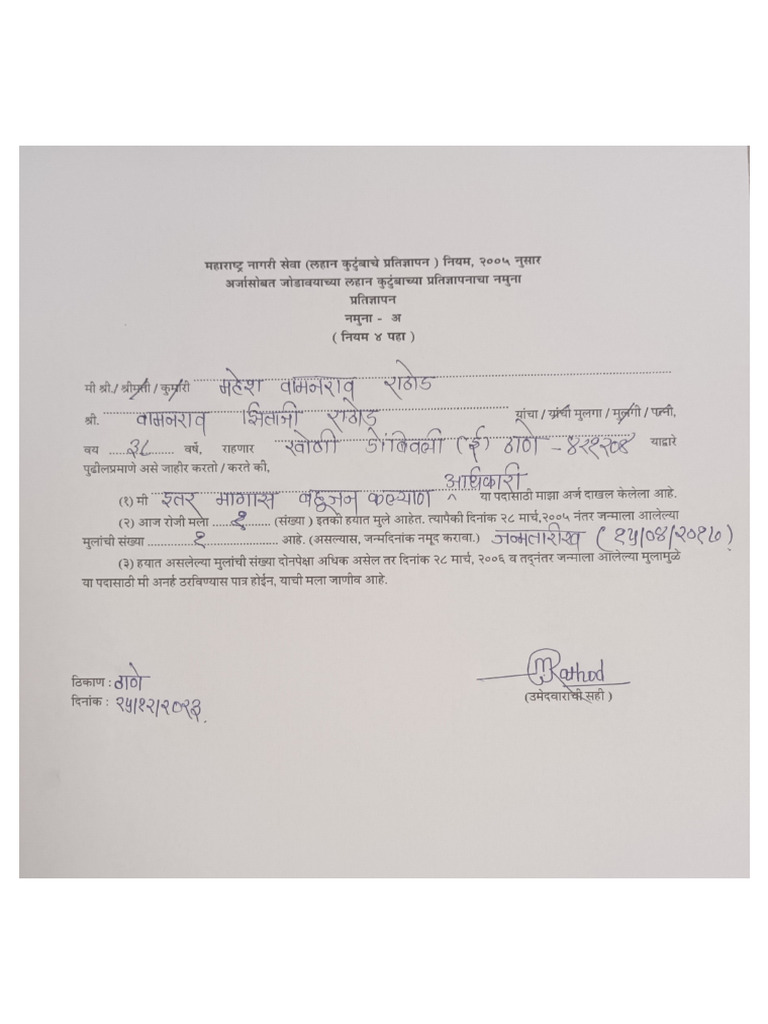 महाराष्ट्र नागरी सेवा (लहान कुटुंबाचे प्रतिज्ञापन ) नियम, २००५ नुसार
अर्जासोबत जोडावयाच्या लहान कुटुंबाच्या प्रतिज्ञापनाचा नमुना
प्रतिज्ञापन
नमुना - अ
( नियम ४ पहा )
मी श्री./ श्रीमती / कुमारी महेश वामनराव राठोड
श्री. वामनराव राठोड यांचा / यांची मुलगा / मुलगी / पत्नी,
वय ......३८........ वर्षे, राहणार खोणी डोंबिवली (ई) ठाणे - ४२१२०४ याद्वारे
पुढीलप्रमाणे असे जाहीर करतो / करते की,
(१) मी इतर मागास बहुजन कल्याण अधिकारी या पदासाठी माझा अर्ज दाखल केलेला आहे.
(२) आज रोजी मला ......१........ (संख्या ) इतकी हयात मुले आहेत. त्यापैकी दिनांक २८ मार्च,२००५ नंतर जन्माला आलेल्या
मुलांची संख्या ..............१.................... आहे. (असल्यास, जन्मदिनांक नमूद करावा.) जन्मतारीख ( १५/०४/२०१७ )
(३) हयात असलेल्या मुलांची संख्या दोनपेक्षा अधिक असेल तर दिनांक २८ मार्च, २००६ व तद्नंतर जन्माला आलेल्या मुलामुळे
या पदासाठी मी अनर्ह ठरविण्यास पात्र होईन, याची मला जाणीव आहे.
ठिकाण : ठाणे
दिनांक : २५/१२/२०२३.
MRathod
(उमेदवाराची सही )